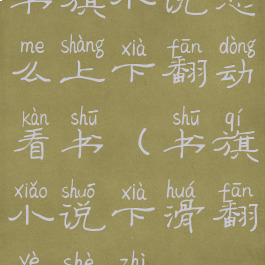 书旗小说怎
me shàng xià fān dòng
么上下翻动
kàn shū shū qí
看书(书旗
xiǎo shuō xià huá fān
小说下滑翻
yè shè zhì